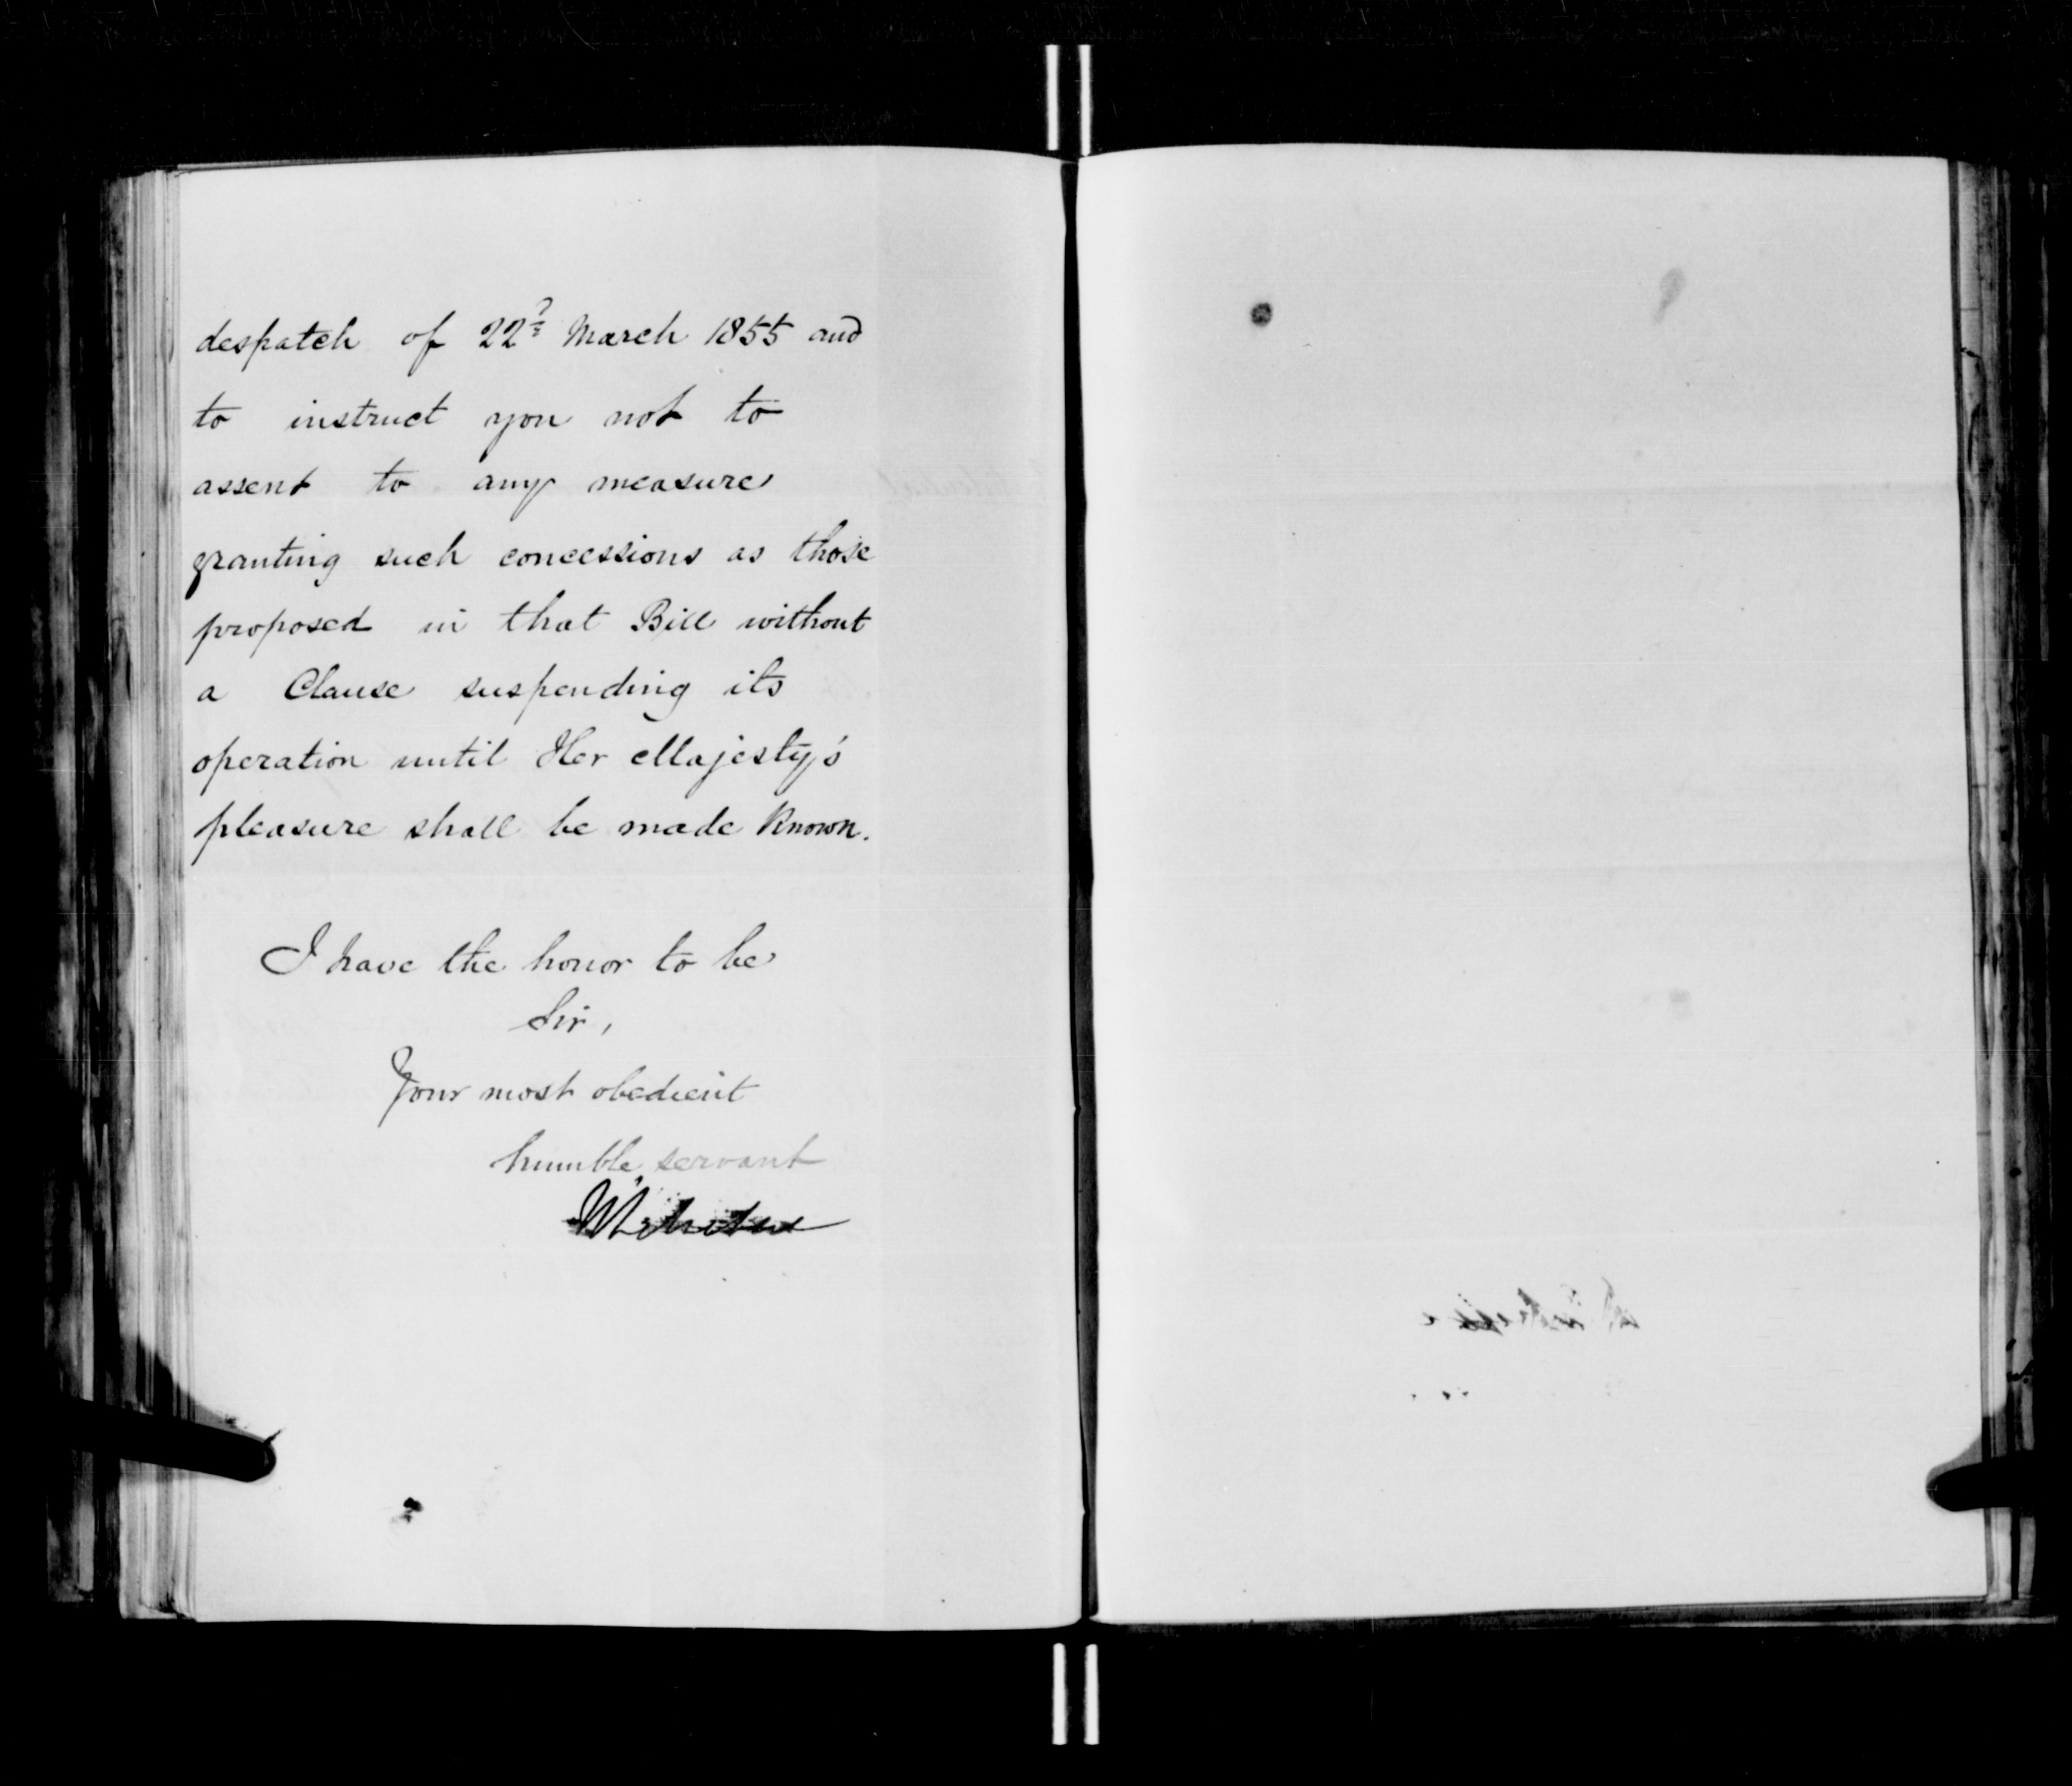 despatch of 22d March 1855 and
to instruct you not to
assent to any measure
granting such concessions as those
proposed in that Bill without
a Clause suspending its
operation until Her Majesty's
pleasure shall be made known.
I have the honor to be
Sir,
Your most obedient
humble servant